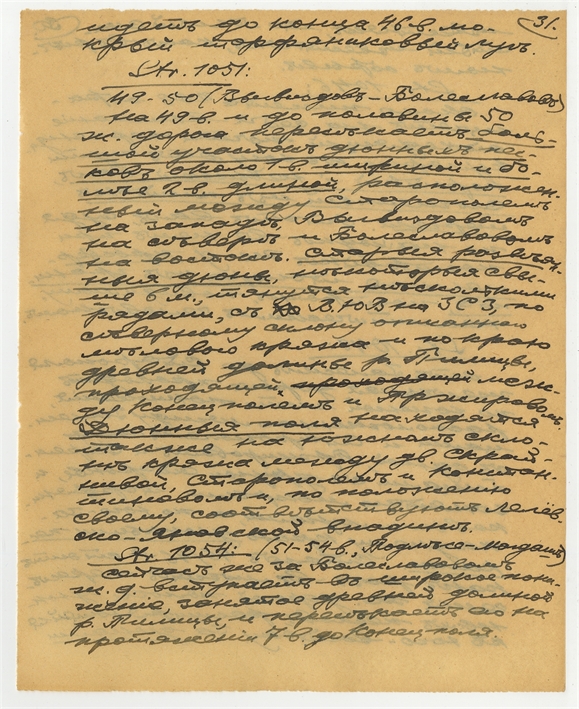 31.
идетъ до конца 46 в. мо-
крый торфяниковый лугъ.
Str. 1051:
49-50 (Вывиздовъ-Болеславовъ)
на 49-в. и до половины 50
ж. дорога пересѣкаетъ боль-
шой участокъ дюнныхъ пес-
ковъ около 1-в. шириной и бо-
лѣе 2-в. длиной, расположен-
ный между Старополемъ
на западѣ, Вывиздовомъ
на сѣверѣ и Болеславовомъ
на востокѣ. Старыя развѣян-
ныя дюны, нѣкоторыя свы-
ше 6 м., тянутся нѣсколькими
рядами, съ В.Ю.В на ЗСЗ, по
сѣверному склону описаннаго
мѣлового кряжа и по краю
древней долины р. Пилицы,
проходящей, проходящей меж-
ду Конецполемъ и Пржировомъ.
Дюнныя поля находятся
также на южномъ скло-
нѣ кряжа между дв. Скрай-
нивой, Старополемъ и Констан-
тиновомъ и, по положенію
своему, соотвѣтствуютъ Лелёв-
ско-Яновской впадинѣ.
Str. 1054: (51-54 в.,
Сейчасъ же за Болеславовомъ
ж. д. вступаетъ въ широкое пони-
женіе, занятое древней долиной
р. Пилицы, и пересѣкаетъ его на
протяженіи 7 в. до Конецполя.